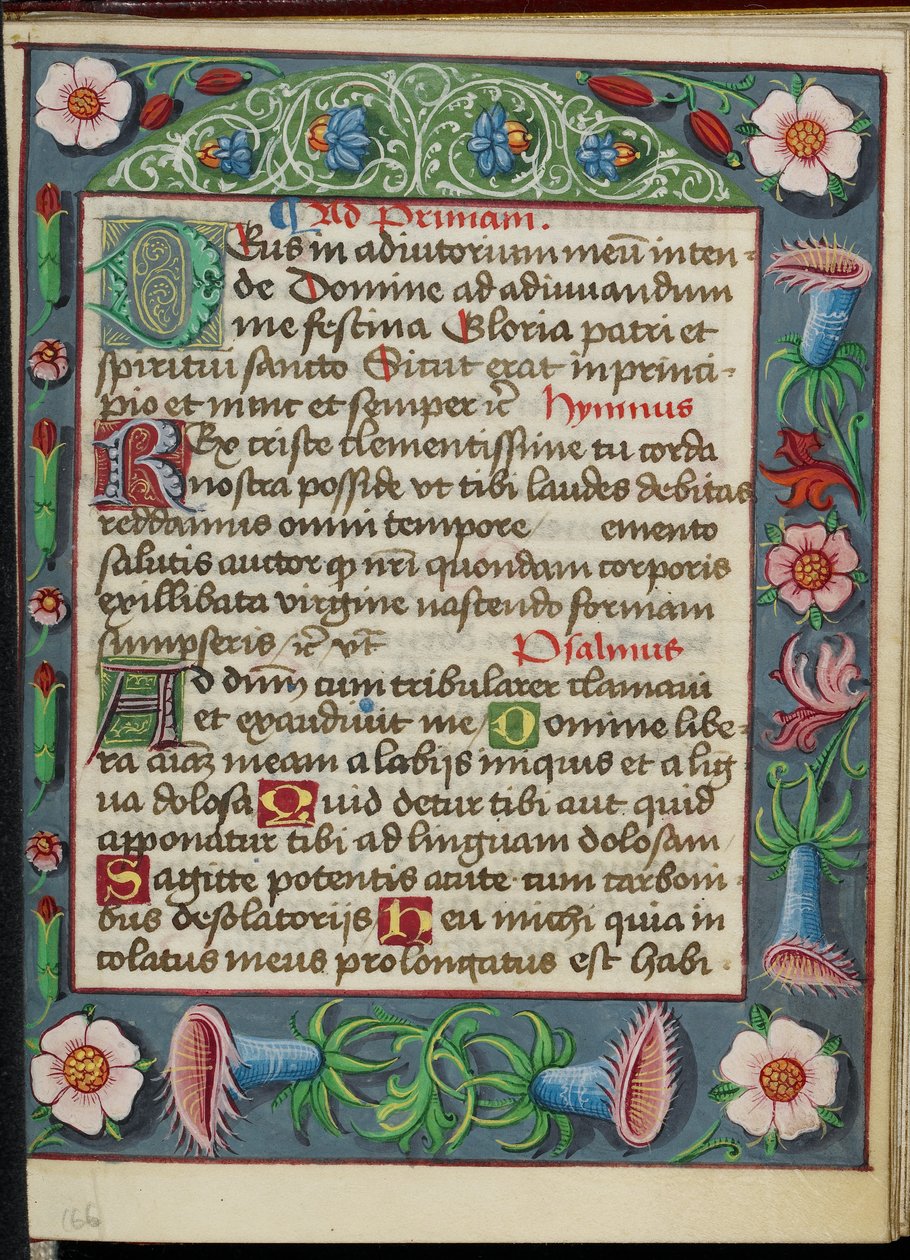 ¶ Ad Primam.
DEus in adiutorium meū inten-
de Domine ad adiuuandum
me festina Gloria patri et
spiritui sancto Sicut erat in princi-
pio et nunc et semper ꝛc̄ hymnus
REx criste clementissime tu corda
nostra posside vt tibi laudes debitas
reddamus omni tempore / emento
salutis auctor ꝙ nr̄i quondam corporis
ex illibata virgine nascendo formam
sumpseris / ꝛc̄ vt̄ Psalmus
AD dn̄m cum tribularer clamaui
et exaudiuit me / Domine libe-
ra aīaꝫ meam a labijs iniquis et a liḡ
ua dolosa Quid detur tibi aut quid
apponatur tibi ad linguam dolosam /
Sagitte potentis acute cum carboni-
bus desolatorijs / Heu michi quia in
colatus meus prolongatus est habi-
166